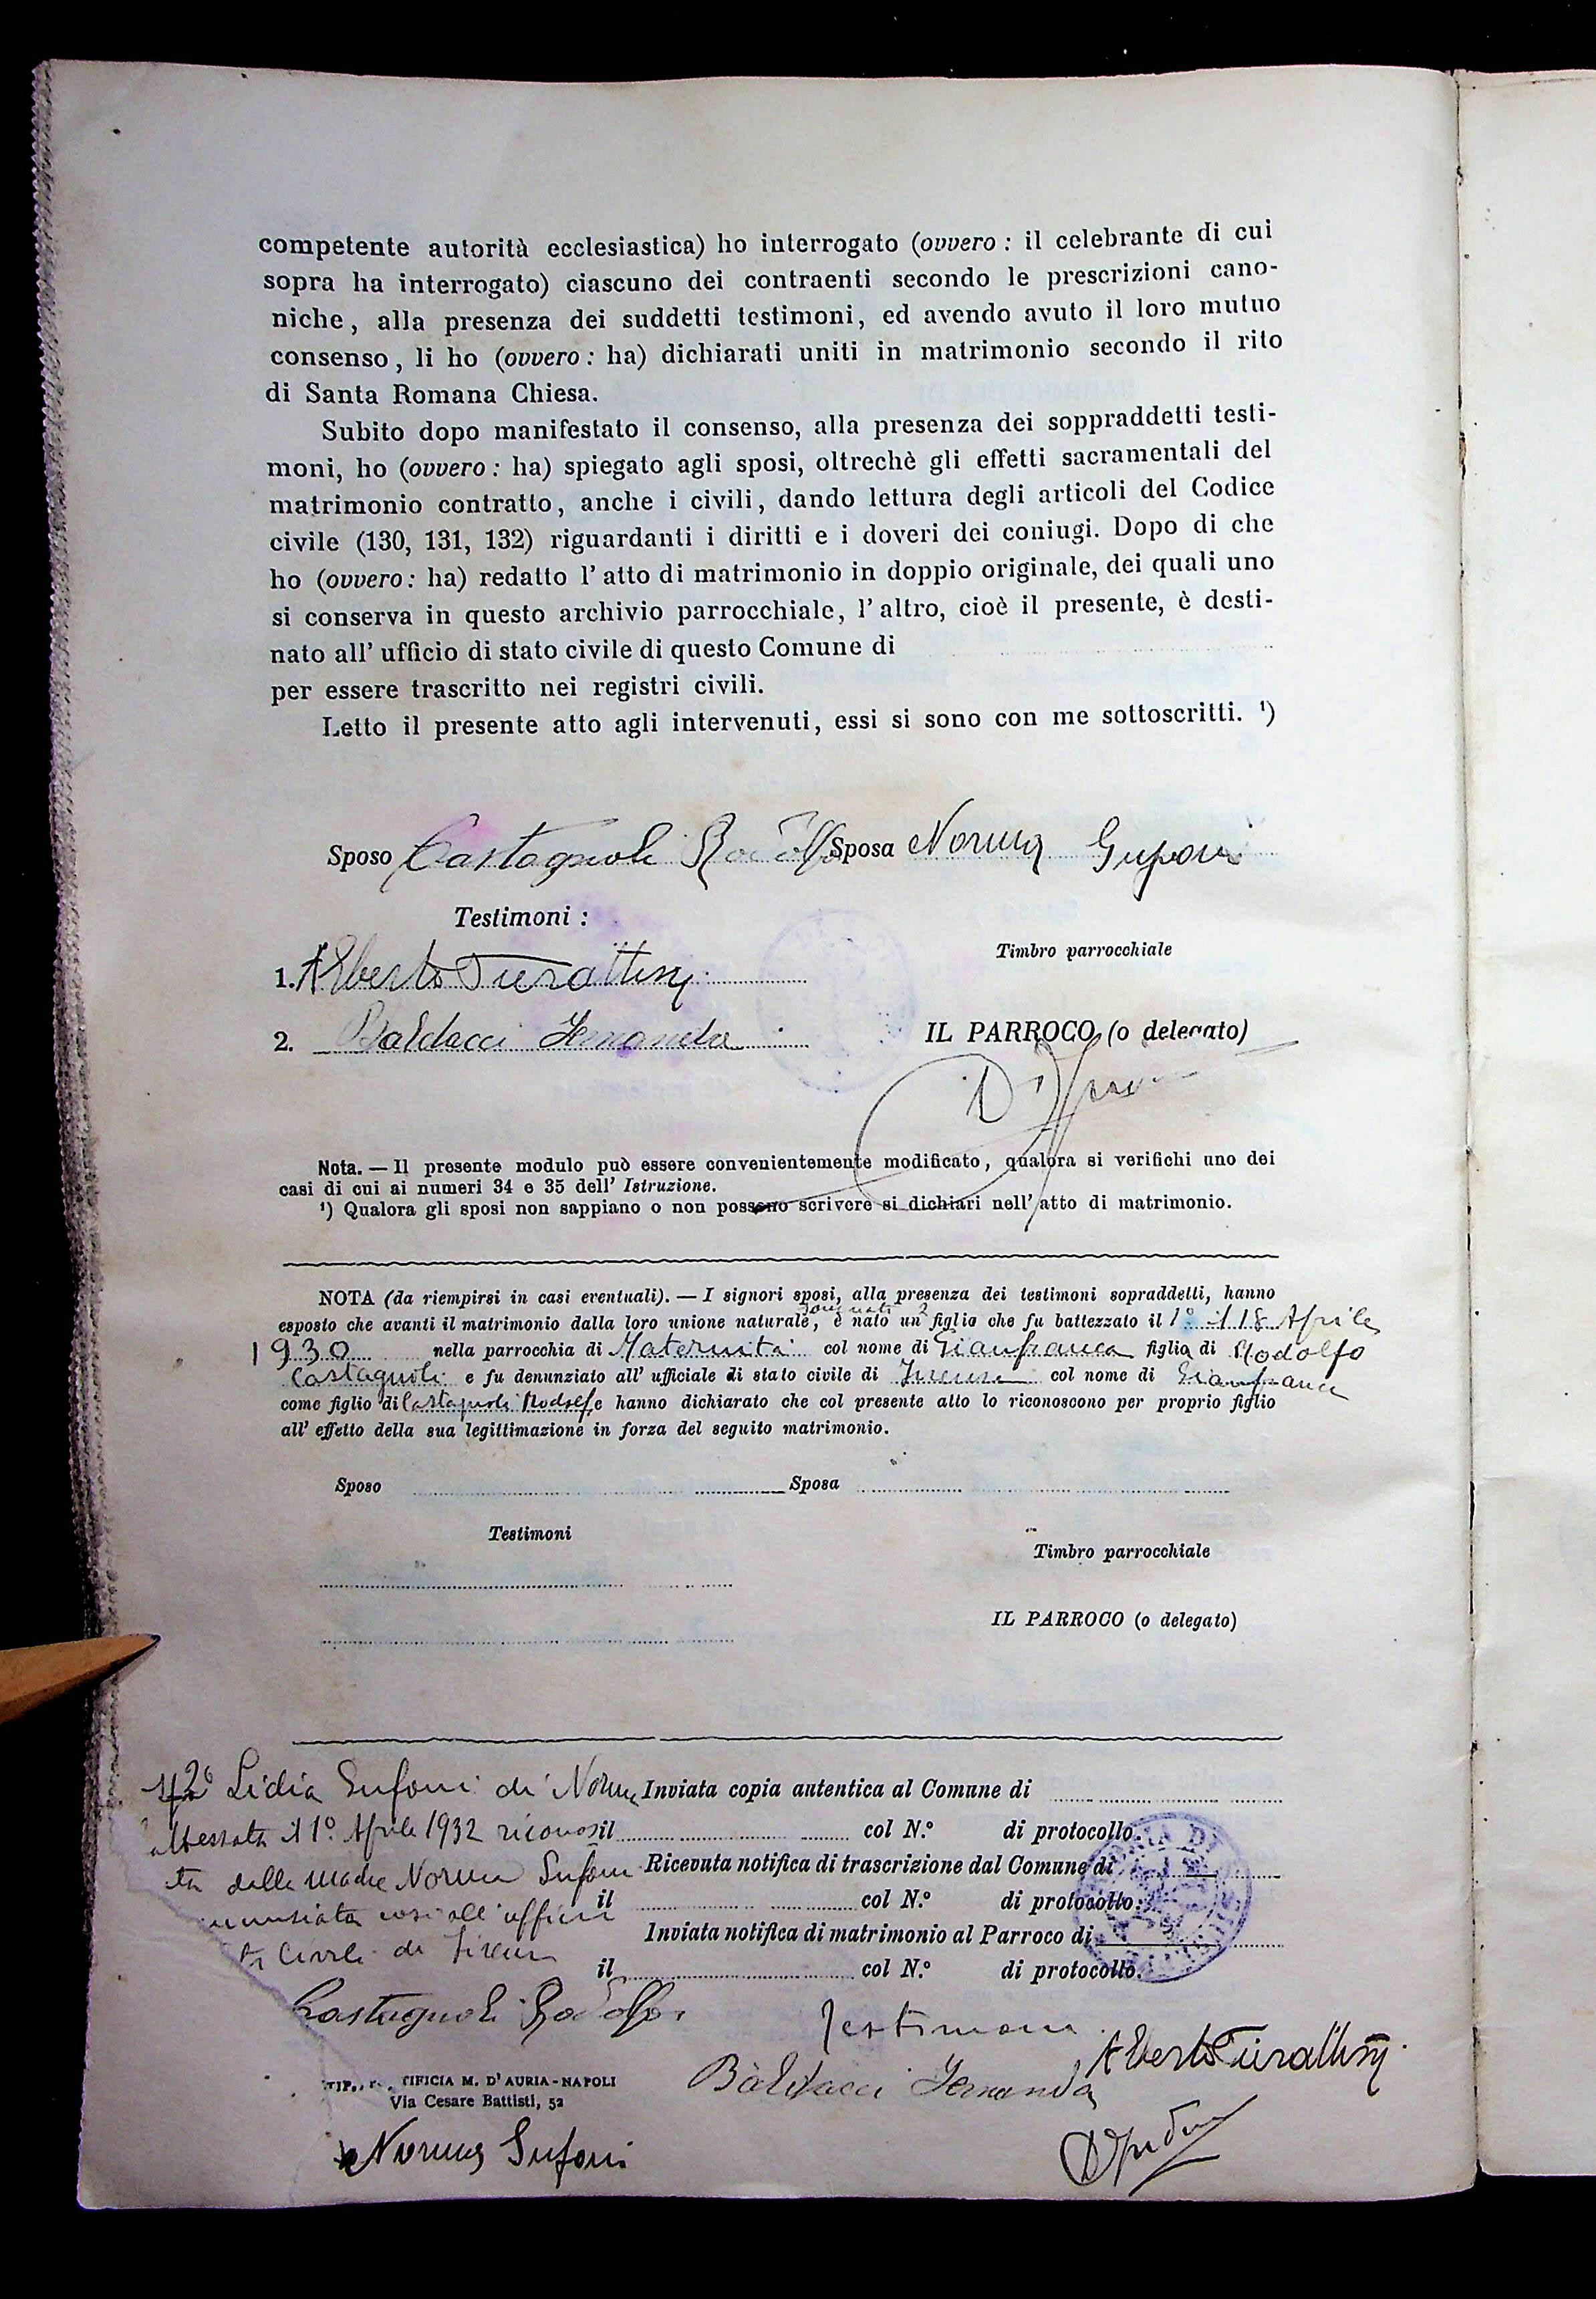 competente autorità ecclesiastica) ho interrogato (ovvero : il celebrante di cui
sopra ha interrogato) ciascuno dei contraenti secondo le prescrizioni cano-
niche, alla presenza dei suddetti testimoni, ed avendo avuto il loro mutuo
consenso, li ho (ovvero : ha) dichiarati uniti in matrimonio secondo il rito
di Santa Romana Chiesa.
Subito dopo manifestato il consenso, alla presenza dei soppraddetti testi-
moni, ho (ovvero : ha) spiegato agli sposi, oltrechè gli effetti sacramentali del
matrimonio contratto, anche i civili, dando lettura degli articoli del Codice
civile (130, 131, 132) riguardanti i diritti e i doveri dei coniugi. Dopo di che
ho (ovvero : ha) redatto l' atto di matrimonio in doppio originale, dei quali uno
si conserva in questo archivio parrocchiale, l' altro, cioè il presente, è desti-
nato all' ufficio di stato civile di questo Comune di
per essere trascritto nei registri civili.
Letto il presente atto agli intervenuti, essi si sono con me sottoscritti. ¹)
Sposo Castagnoli Rodolfo Sposa Norma
Testimoni :
Timbro parrocchiale
1. Alberto Turattini
2. Baldacci
IL PARROCO (o delegato)
Nota. — Il presente modulo può essere convenientemente modificato, qualora si verifichi uno dei
casi di cui ai numeri 34 e 35 dell' Istruzione.
¹) Qualora gli sposi non sappiano o non possono scrivere si dichiari nell' atto di matrimonio.
NOTA (da riempirsi in casi eventuali). — I signori sposi, alla presenza dei testimoni sopraddetti, hanno
esposto che avanti il matrimonio dalla loro unione naturale, è nato un figlio che fu battezzato il 1° il 18 Aprile
1930 nella parrocchia di Maternità col nome di Gianfranca figlia di Rodolfo
Castagnoli e fu denunziato all' ufficiale di stato civile di Firenze col nome di Gianfranca
come figlio di Castagnoli Rodolfo e hanno dichiarato che col presente atto lo riconoscono per proprio figlio
all' effetto della sua legittimazione in forza del seguito matrimonio.
Sposo Sposa
Testimoni
Timbro parrocchiale
IL PARROCO (o delegato)
2° Lidia Sufoni di Norma Inviata copia autentica al Comune di
il 1° Aprile 1932 il col N.° di protocollo.
ta dalla madre Norma Sufoni Ricevuta notifica di trascrizione dal Comune di
così all' il col N.° di protocollo.
Inviata notifica di matrimonio al Parroco di
Civile di
il col N.° di protocollo.
Castagnoli Rodolfo
Testimoni
Alberto Turattini
Baldacci
TIFICIA M. D' AURIA - NAPOLI
Via Cesare Battisti, 52
Norma Sufoni